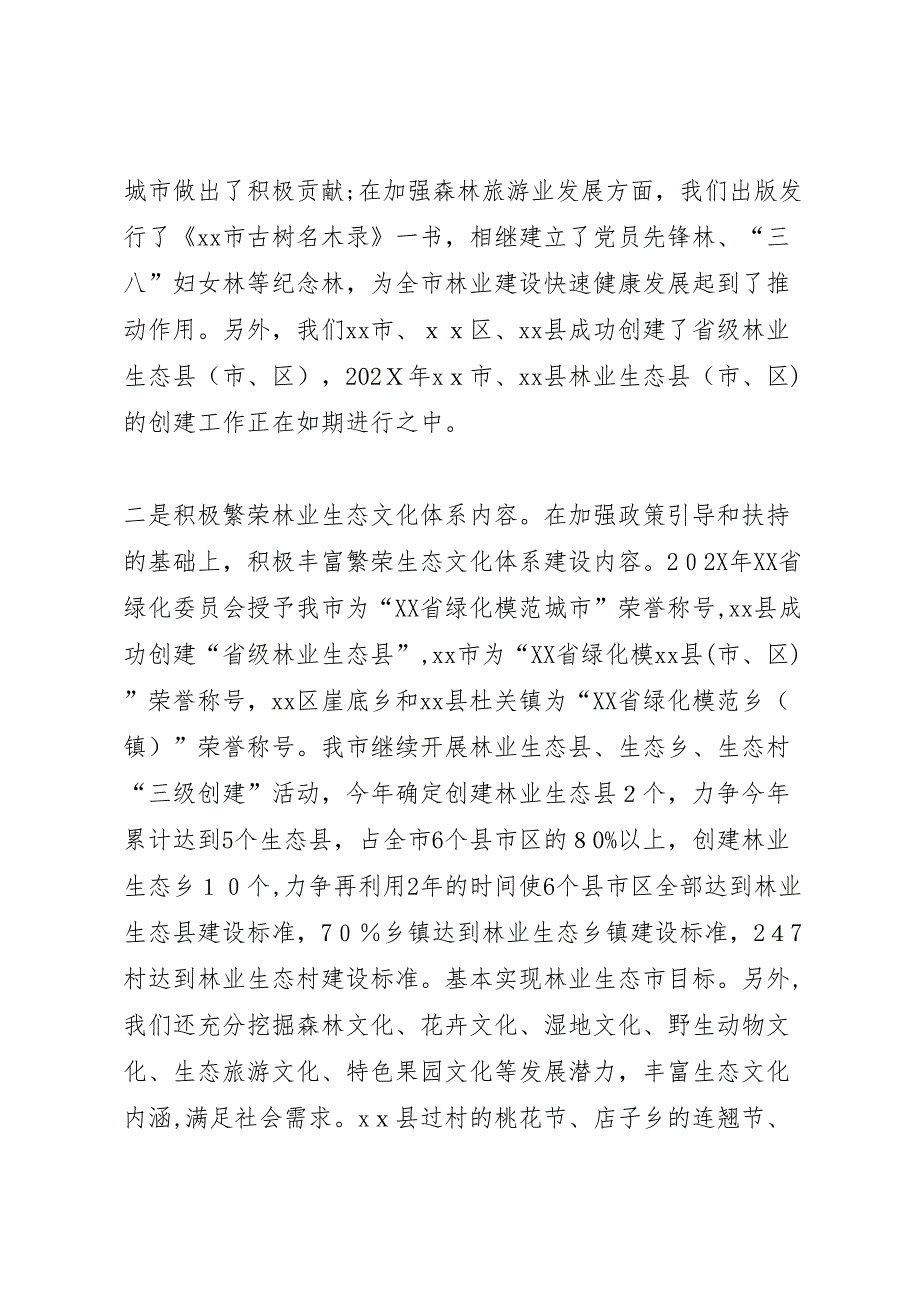 城市做出了积极贡献;在加强森林旅游业发展方面，我们出版发
行了《xx市古树名木录》一书，相继建立了党员先锋林、“三
八”妇女林等纪念林，为全市林业建设快速健康发展起到了推
动作用。另外，我们xx市、ｘｘ区、xx县成功创建了省级林业
生态县（市、区），202Ｘ年xｘ市、xx县林业生态县（市、区)
的创建工作正在如期进行之中。
二是积极繁荣林业生态文化体系内容。在加强政策引导和扶持
的基础上，积极丰富繁荣生态文化体系建设内容。２０2X年XX省
绿化委员会授予我市为“XX省绿化模范城市”荣誉称号,xx县成
功创建“省级林业生态县”,xx市为“XX省绿化模xx县(市、区)
”荣誉称号，xx区崖底乡和xx县杜关镇为“XX省绿化模范乡（
镇）”荣誉称号。我市继续开展林业生态县、生态乡、生态村
“三级创建”活动，今年确定创建林业生态县２个，力争今年
累计达到5个生态县，占全市6个县市区的８0%以上，创建林业
生态乡１０个,力争再利用2年的时间使6个县市区全部达到林业
生态县建设标准，7０％乡镇达到林业生态乡镇建设标准，２4７
村达到林业生态村建设标准。基本实现林业生态市目标。另外,
我们还充分挖掘森林文化、花卉文化、湿地文化、野生动物文
化、生态旅游文化、特色果园文化等发展潜力，丰富生态文化
内涵,满足社会需求。xｘ县过村的桃花节、店子乡的连翘节、